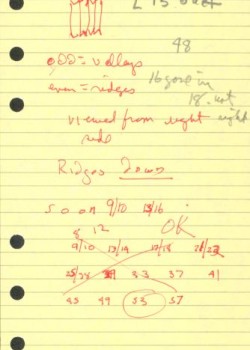 L is out
48
odd = valleys
even = ridges
16 gose in
18. not
viewed from right right
side
Ridges Down
so on 9/10 15/16
8 12 OK
9/10 13/14 17/18
25/26 33 37 41
45 49 53 57